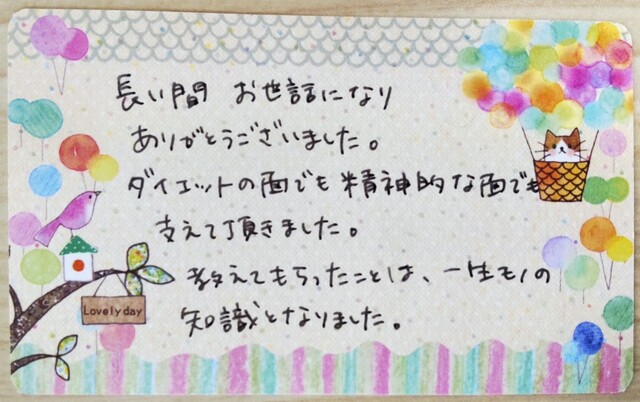 長い間 お世話になり
ありがとうございました。
ダイエットの面でも精神的な面でも
支えて頂きました。
教えてもらったことは、一生モノの
知識となりました。
Lovely day